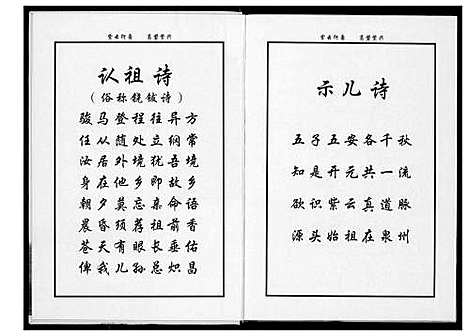 认祖诗
（俗称铙钹诗）
骏马登程往异方
任从随处立纲常
汝居外境犹吾境
身在他乡即故乡
朝夕莫忘亲命语
晨昏须荐祖前香
苍天有眼长垂佑
俾我儿孙总炽昌
示儿诗
五子五安各千秋
知是开元共一流
欲识紫云真道脉
源头始祖在泉州